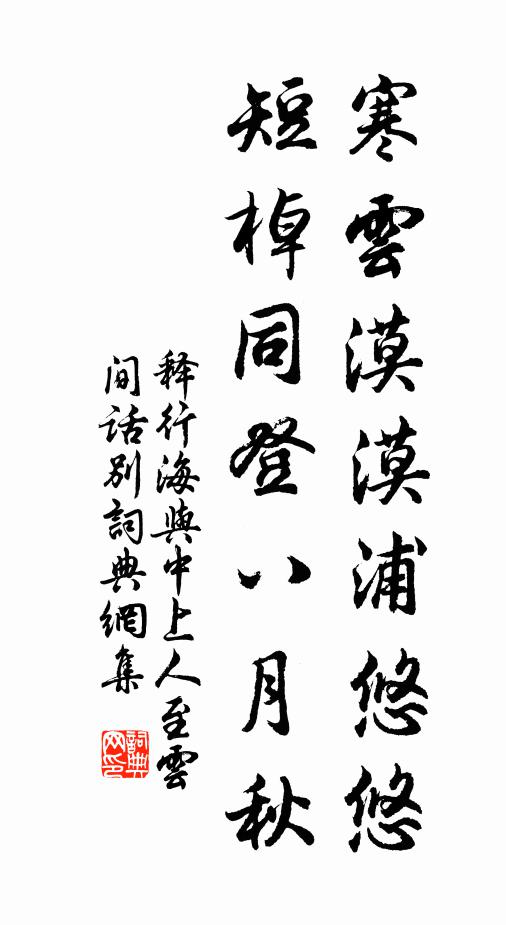 寒雲漠漠浦悠悠
短棹同登八月秋
释行海與中上人至雲
间话别詞典網集
詞典
网印